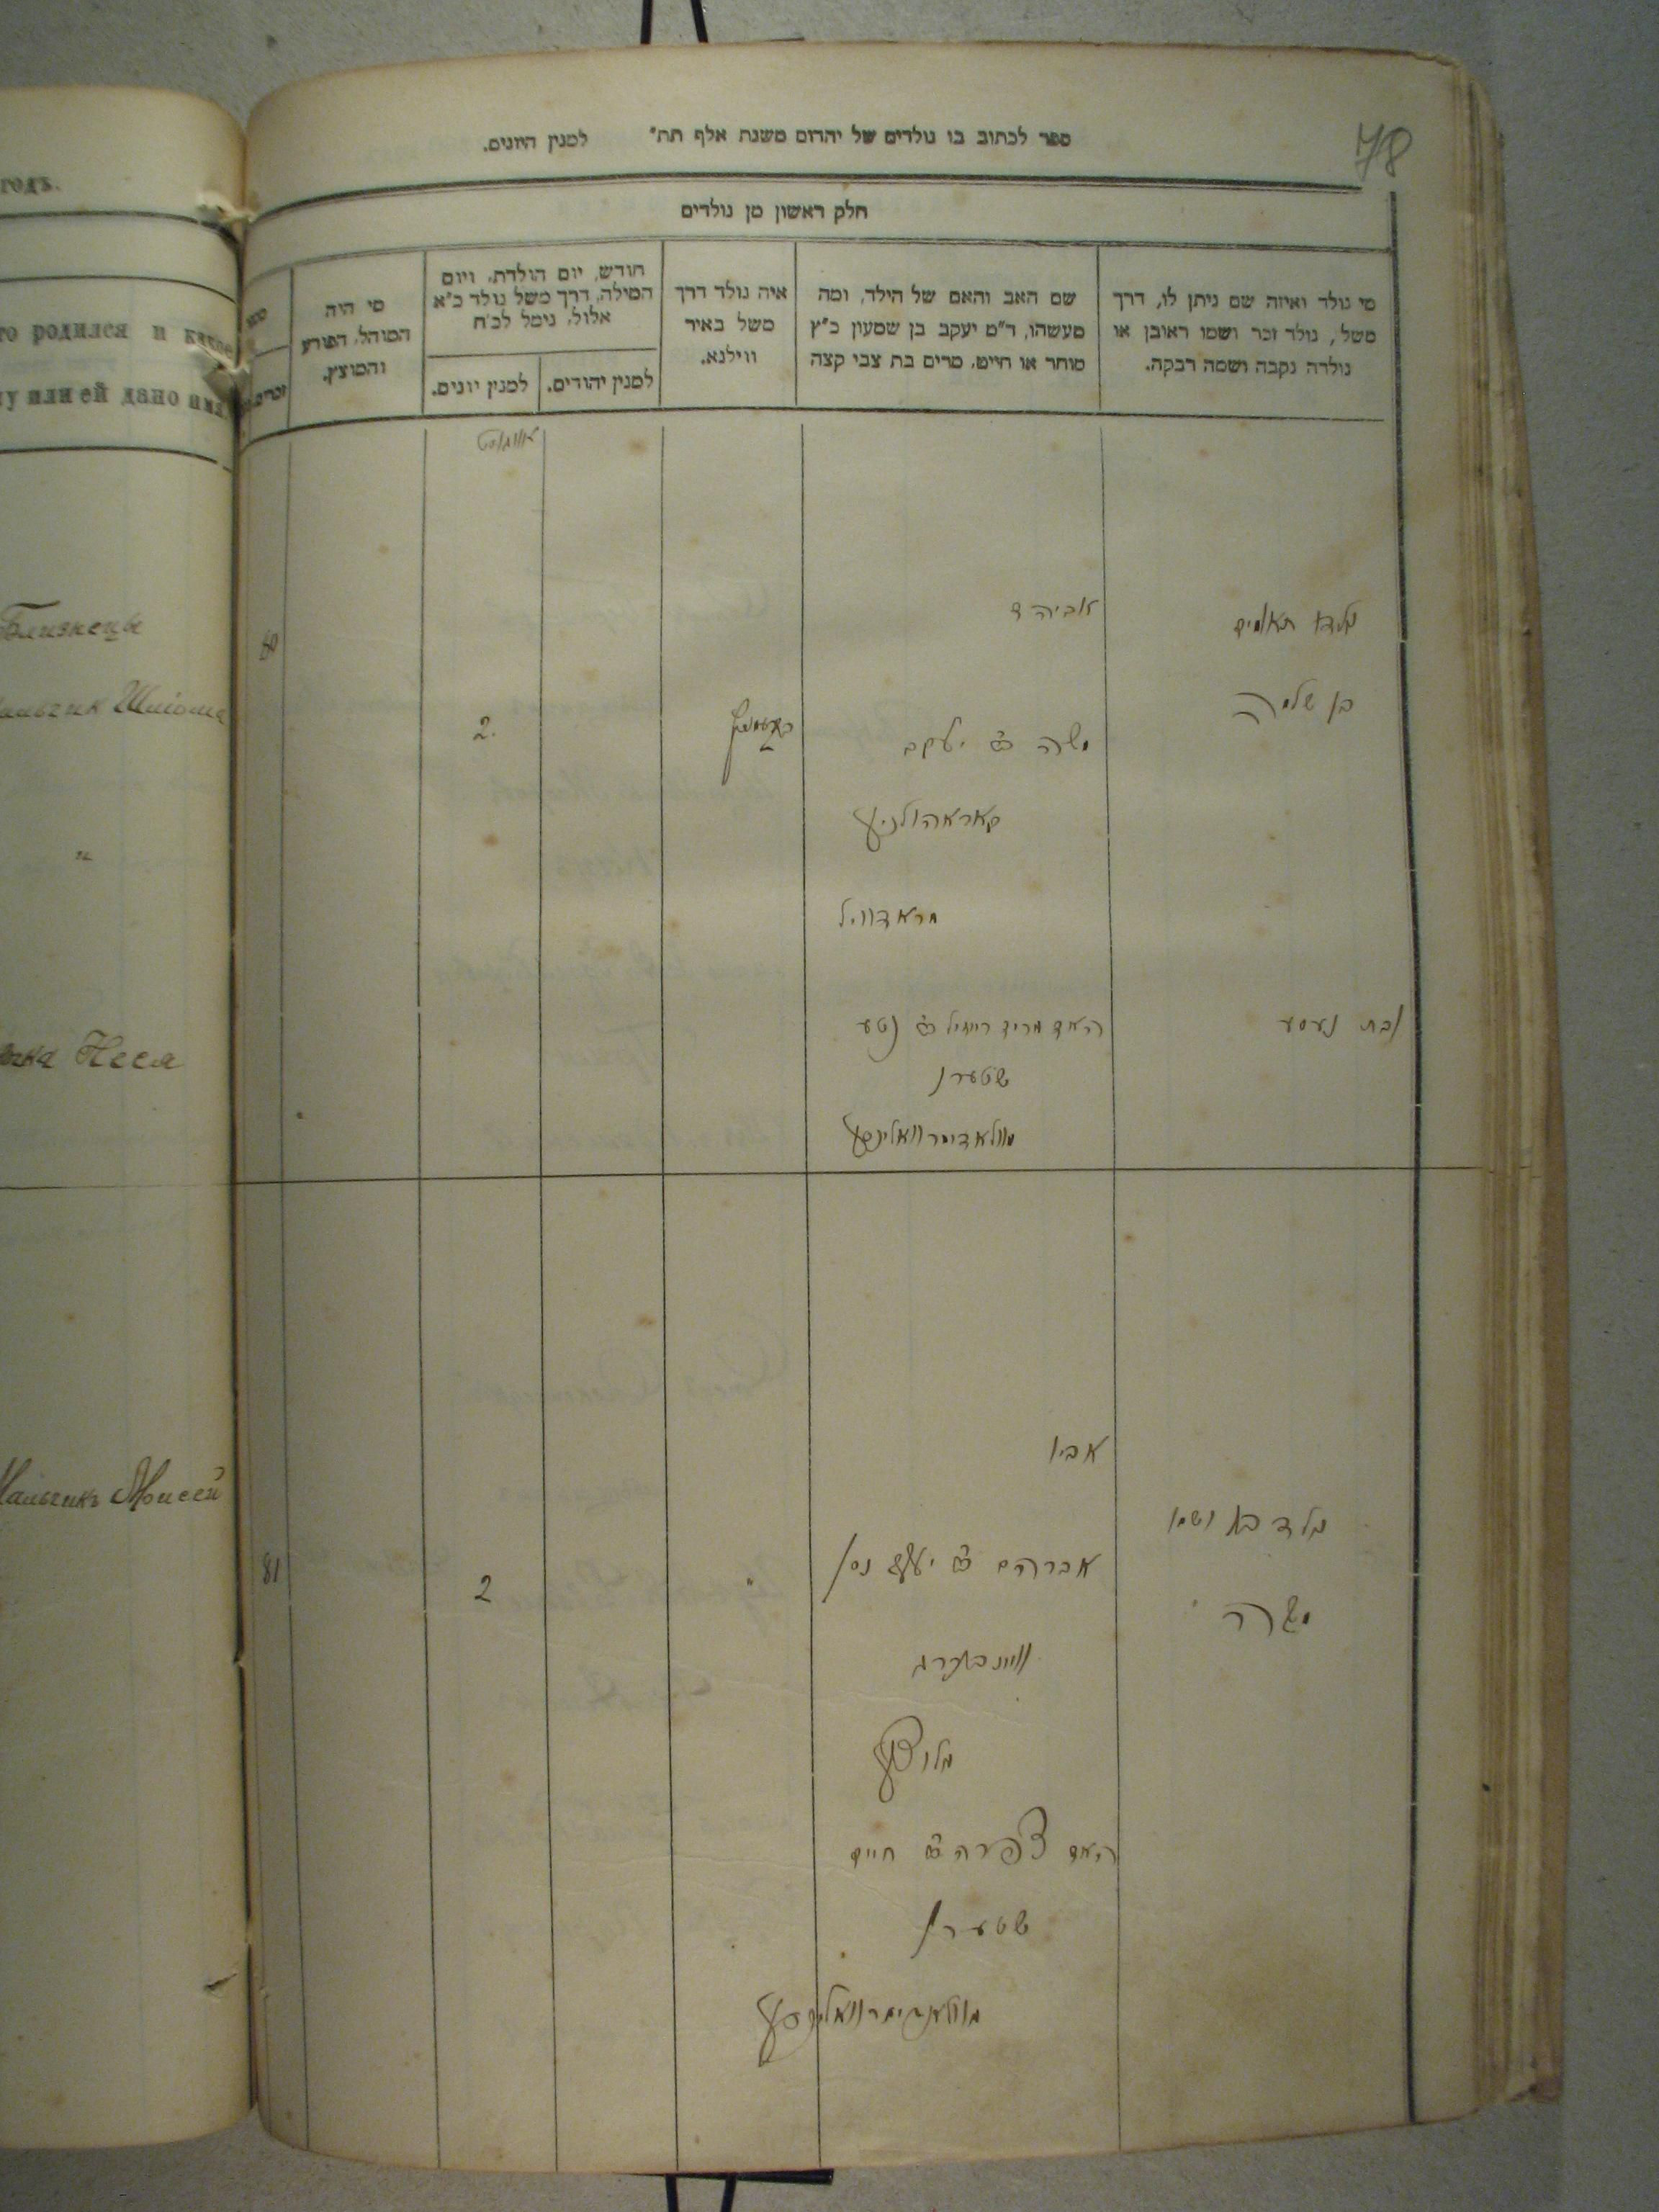 78
ספר לכתוב בו נולדים של יהדום משנת אלף תת״ למנין היונים.
חלק ראשון מן נולדים
מי נולד ואיזה שם ניתן לו, דרך
משל, נולד זכר ושמו ראובן או
נולדה נקבה ושמה רבקה.
שם האב והאם של הילד, ומה
מעשהו, ד״מ יעקב בן שמעון כ״ץ
סוחר או חייט, מרים בת צבי קצה
איה נולד דרך
משל באיר
ווילנא.
חודש, יום הולדת, ויום
המילה, דרך משל נולד כ״א
אלול, נימל לכ״ח
למנין יהודים.
למנין יונים.
מי היה
המוהל, הפורע
והמוצץ.
אווגוסט
נולדו תאומים
בן שלמה
אביהם
משה ב״ר יעקב
מראדוויל
2.
80
ובת נעסע
האם מרים רייזיל ב״ר נטע
שטערן
נולד בן ושמו
משה
אביו
אברהם ב״ר יעקב נסן
וויינבערג
האם צפרה ב״ר חיים
שטערן
"
2
81
годъ.
то родился и какое
у или ей дано имя
Близнецы
Мальчик Шліома
"
Неся
Мальчикъ Мойсей